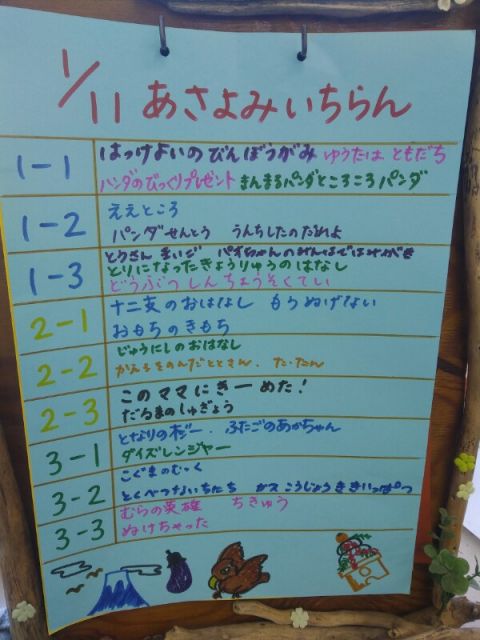 1/11 あさよみいちらん
1-1
はっけよいのびんぼうがみ ゆうたは ともだち
パンダのびっくりプレゼント まんまるパンダところころパンダ
1-2
ええところ
パンダせんとう うんちしたのだれよ
1-3
とりになったきょうりゅうのはなし
どうぶつしんちょうそくてい
2-1
十二支のおはなし もうぬげない
おもちのきもち
2-2
じゅうにしのおはなし
かえるをのんだととさん. たんたん
2-3
このママにきーめた!
だるまのしゅぎょう
3-1
となりの . ふたごのあかちゃん
ダイズレンジャー
3-2
こぐまのむっく
とくべつないちにち ガスこうじょうききいっぱつ
3-3
むらの英雄 ちきゅう
ぬけちゃった